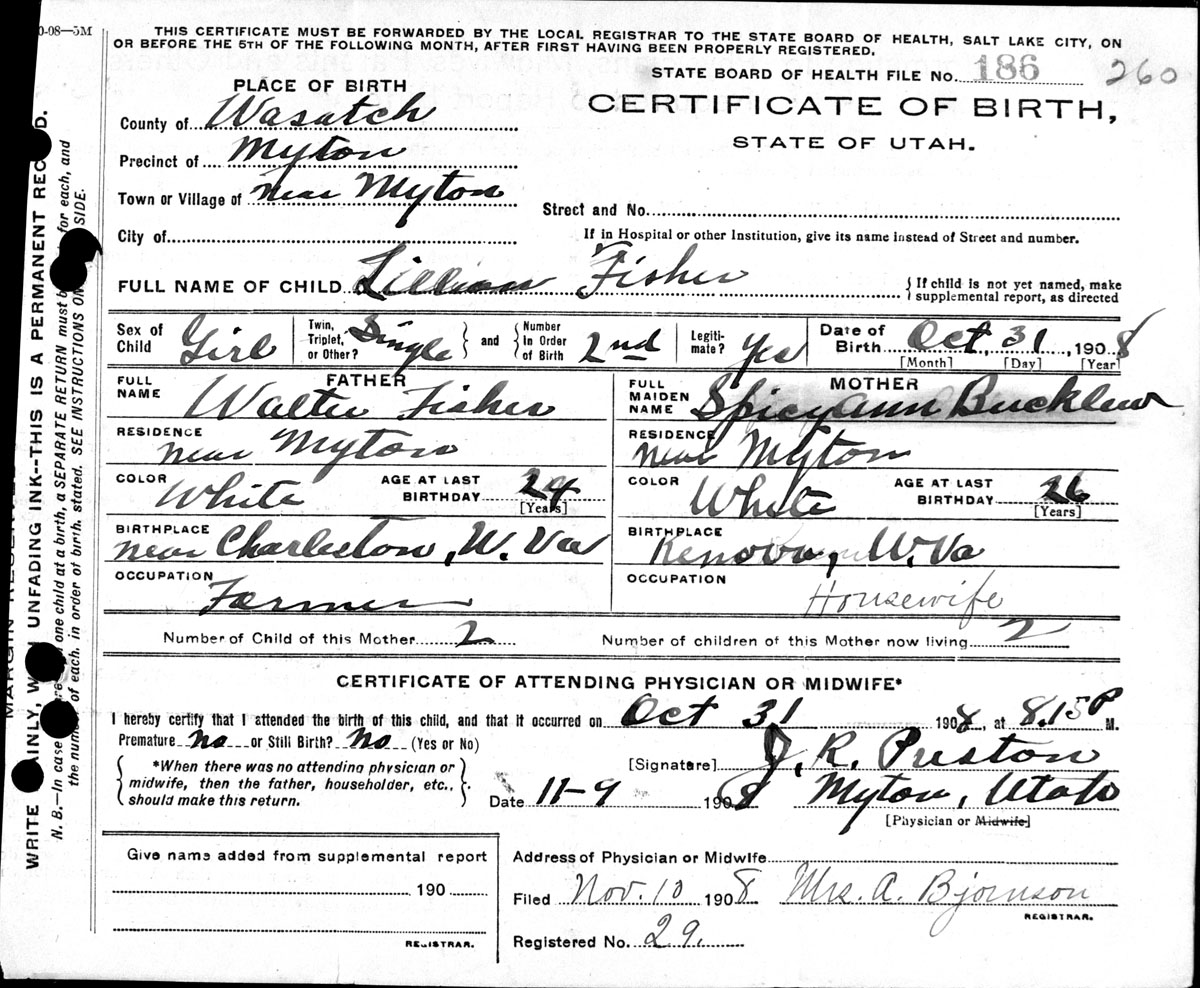 0-08—5M
THIS CERTIFICATE MUST BE FORWARDED BY THE LOCAL REGISTRAR TO THE STATE BOARD OF HEALTH, SALT LAKE CITY, ON
OR BEFORE THE 5TH OF THE FOLLOWING MONTH, AFTER FIRST HAVING BEEN PROPERLY REGISTERED.
STATE BOARD OF HEALTH FILE No. 186 260
PLACE OF BIRTH
CERTIFICATE OF BIRTH,
STATE OF UTAH.
County of Wasatch
Precinct of Myton
Town or Village of near Myton
Street and No.
City of
If in Hospital or other Institution, give its name instead of Street and number.
FULL NAME OF CHILD Lillian Fisher
{ If child is not yet named, make
supplemental report, as directed
Sex of Child Girl
Twin, Triplet, or Other? Single } and { Number In Order of Birth 2nd
Legiti-mate? Yes
Date of Birth Oct, 31, 1908
[Month] [Day] [Year]
FATHER
FULL NAME Walter Fisher
RESIDENCE near Myton
COLOR White
AGE AT LAST BIRTHDAY 24
[Years]
BIRTHPLACE near Charleston, W. Va
OCCUPATION Farmer
MOTHER
FULL MAIDEN NAME Spicy Ann Bucklew
RESIDENCE near Myton
COLOR White
AGE AT LAST BIRTHDAY 26
[Years]
BIRTHPLACE Kenova, W. Va
OCCUPATION Housewife
Number of Child of this Mother 2
Number of children of this Mother now living 2
CERTIFICATE OF ATTENDING PHYSICIAN OR MIDWIFE*
I hereby certify that I attended the birth of this child, and that it occurred on Oct 31 1908, at 8.15 P M.
Premature no or Still Birth? no (Yes or No)
{ *When there was no attending physician or
midwife, then the father, householder, etc.,
should make this return. }
[Signature] J. R. Preston
Date 11-9 1908 Myton, Utah
[Physician or Midwife]
Give name added from supplemental report
190
REGISTRAR.
Address of Physician or Midwife
Filed Nov. 10 1908 Mrs. A. Bjornson
REGISTRAR.
Registered No. 29.
WRITE AINLY, W UNFADING INK--THIS IS A PERMANENT REC D.
N. B.—In case one child at a birth, a SEPARATE RETURN must b for each, and
the num of each, in order of birth, stated. SEE INSTRUCTIONS ON SIDE.